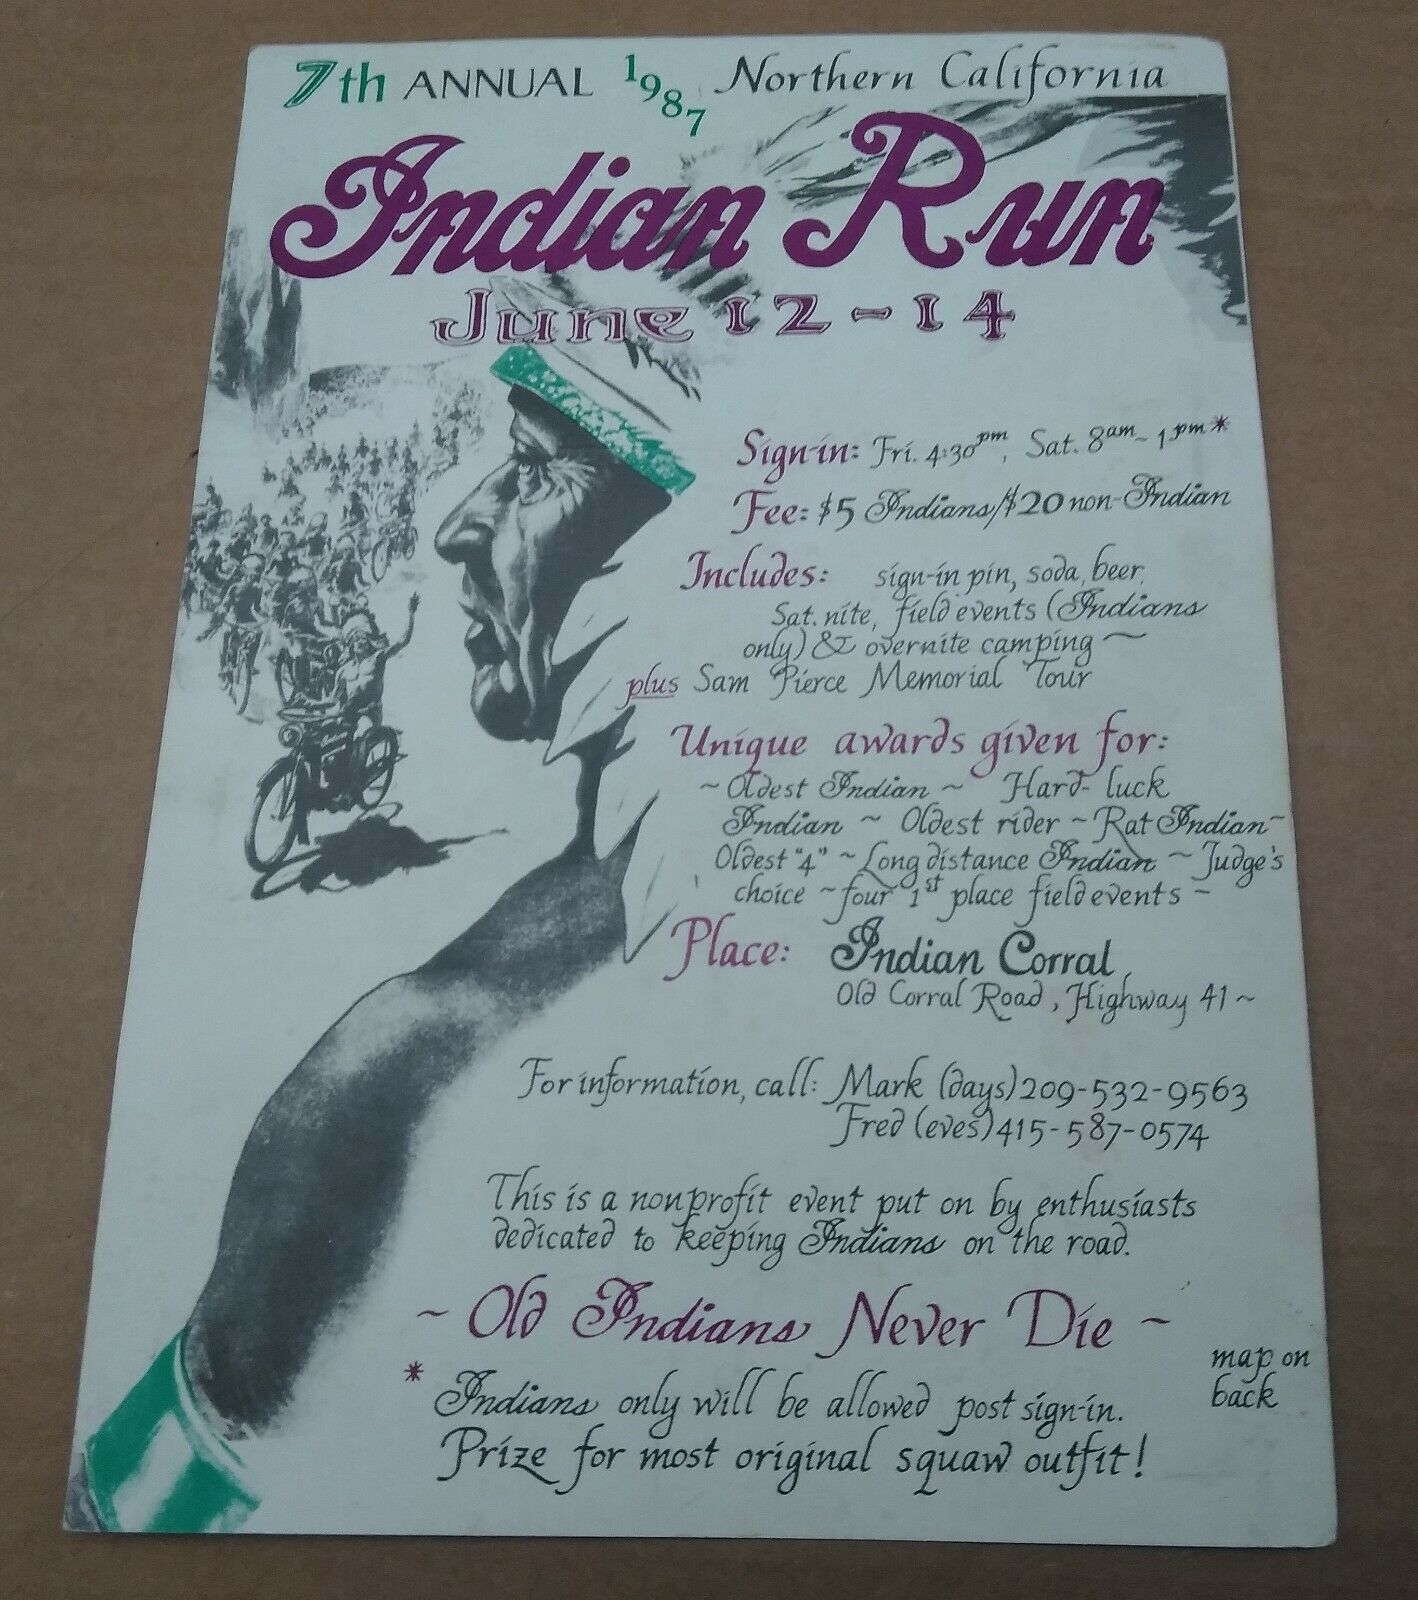 7th ANNUAL 1987 Northern California
Indian Run
June 12-14
Sign-in: Fri. 4:30pm, Sat. 8am~1pm*
Fee: $5 Indians/$20 non-Indian
Includes: sign-in pin, soda, beer,
Sat. nite, field events (Indians
only) & overnite camping ~
plus Sam Pierce Memorial Tour
Unique awards given for:
~Oldest Indian ~ Hard-luck
Indian ~ Oldest rider ~ Rat Indian~
Oldest "4" ~ Long distance Indian ~ Judge's
choice ~ four 1st place field events ~
Place: Indian Corral,
Old Corral Road, Highway 41 ~
For information, call: Mark (days) 209-532-9563
Fred (eves) 415-587-0574
This is a nonprofit event put on by enthusiasts
dedicated to keeping Indians on the road.
~ Old Indians Never Die ~
map on
back
* Indians only will be allowed post sign-in.
Prize for most original squaw outfit!